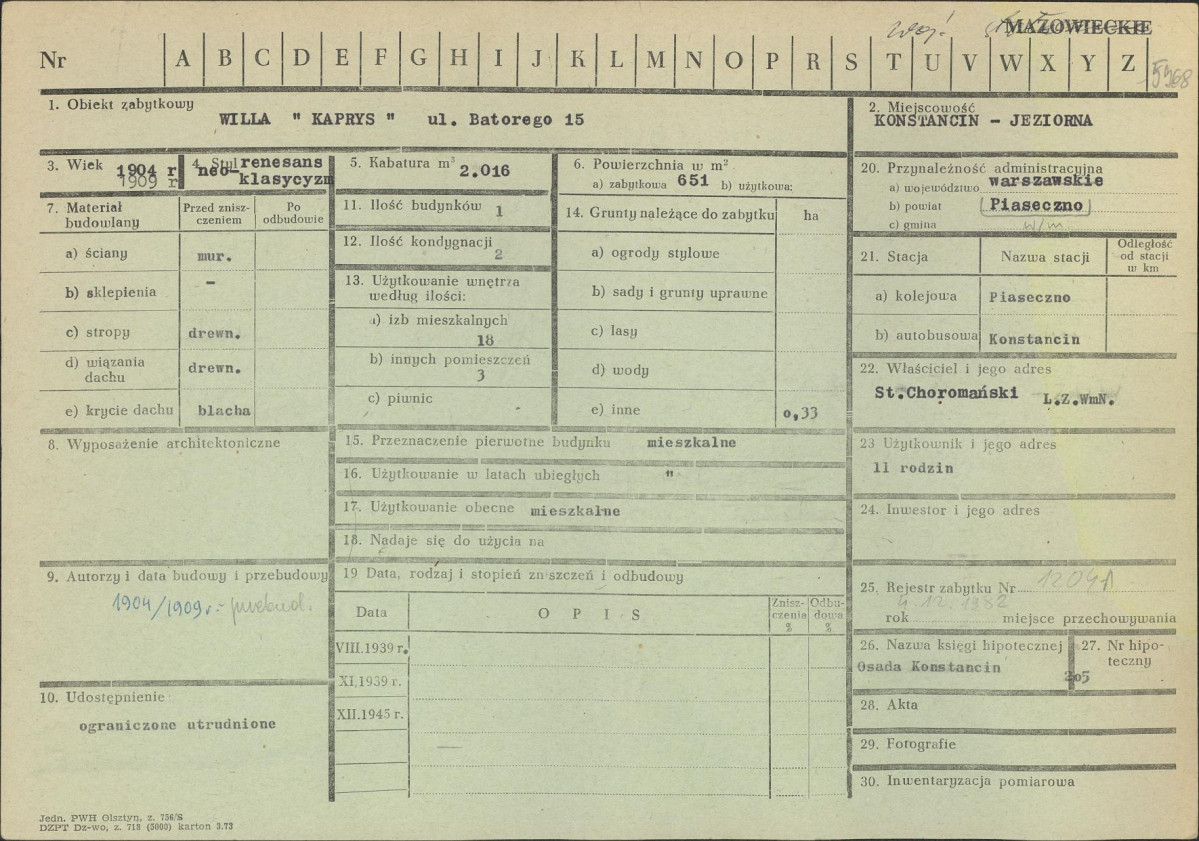 woj. MAZOWIECKIE
Nr A B C D E F G H I J K L M N O P R S T U V W X Y Z
5368
1. Obiekt zabytkowy
WILLA " KAPRYS " ul. Batorego 15
2. Miejscowość
KONSTANCIN - JEZIORNA
3. Wiek 1904 r
1909 r
4. Styl renesans
neo-
klasycyzm
5. Kabatura m³
2.016
6. Powierzchnia w m²
a) zabytkowa 651 b) użytkowa:
20. Przynależność administracyjna
a) województwo warszawskie
b) powiat Piaseczno
c) gmina w/m
7. Materiał
budowlany
Przed znisz-
czeniem
Po
odbudowie
a) ściany mur.
b) sklepienia -
c) stropy drewn.
d) wiązania
dachu drewn.
e) krycie dachu blacha
11. Ilość budynków 1
12. Ilość kondygnacji
2
13. Użytkowanie wnętrza
według ilości:
a) izb mieszkalnych
18
b) innych pomieszczeń
3
c) piwnic
14. Grunty należące do zabytku ha
a) ogrody stylowe
b) sady i grunty uprawne
c) lasy
d) wody
e) inne 0,33
21. Stacja Nazwa stacji
Odległość
od stacji
w km
a) kolejowa Piaseczno
b) autobusowa Konstancin
22. Właściciel i jego adres
St.Choromański L.Z.WmN.
8. Wyposażenie architektoniczne
15. Przeznaczenie pierwotne budynku mieszkalne
16. Użytkowanie w latach ubiegłych "
17. Użytkowanie obecne mieszkalne
18. Nadaje się do użycia na
23 Użytkownik i jego adres
11 rodzin
24. Inwestor i jego adres
9. Autorzy i data budowy i przebudowy
1904/1909 r. - przebud.
19 Data, rodzaj i stopień zniszczeń i odbudowy
Data O P I S
Znisz-
czenia
%
Odbu-
dowa
%
VIII.1939 r.
XI.1939 r.
XII.1945 r.
25. Rejestr zabytku Nr 1204A
4.12.1982
rok miejsce przechowywania
26. Nazwa księgi hipotecznej
Osada Konstancin
27. Nr hipo-
teczny
205
10. Udostępnienie
ograniczone utrudnione
28. Akta
29. Fotografie
30. Inwentaryzacja pomiarowa
Jedn. PWH Olsztyn, z. 736/S
DZPT Dz-wo, z. 713 (5000) karton 3.73